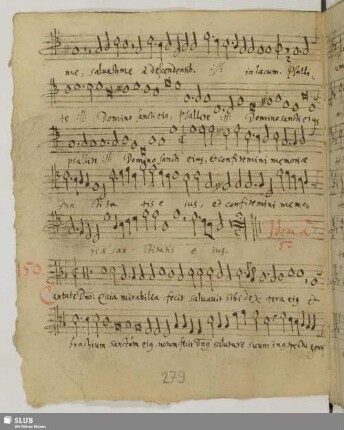 me, saluasti me à descendentib. :||: in lacum. Psalli-
te :||: Domino sancti eius, psallite :||: Domino sancti eius
psallite :||: Domino sancti eius, et confitemini memoriæ
sanctita tis e ius, et confitemini memo-
riæ san ctitatis e ius.
Idem à
5.
150.
Cantate Dno: Quia mirabilia fecit saluauit sibi dex tera eig et
brachium sanctum eig. notum fecit Dng salutare suum
279
SLUB
Wir führen Wissen.